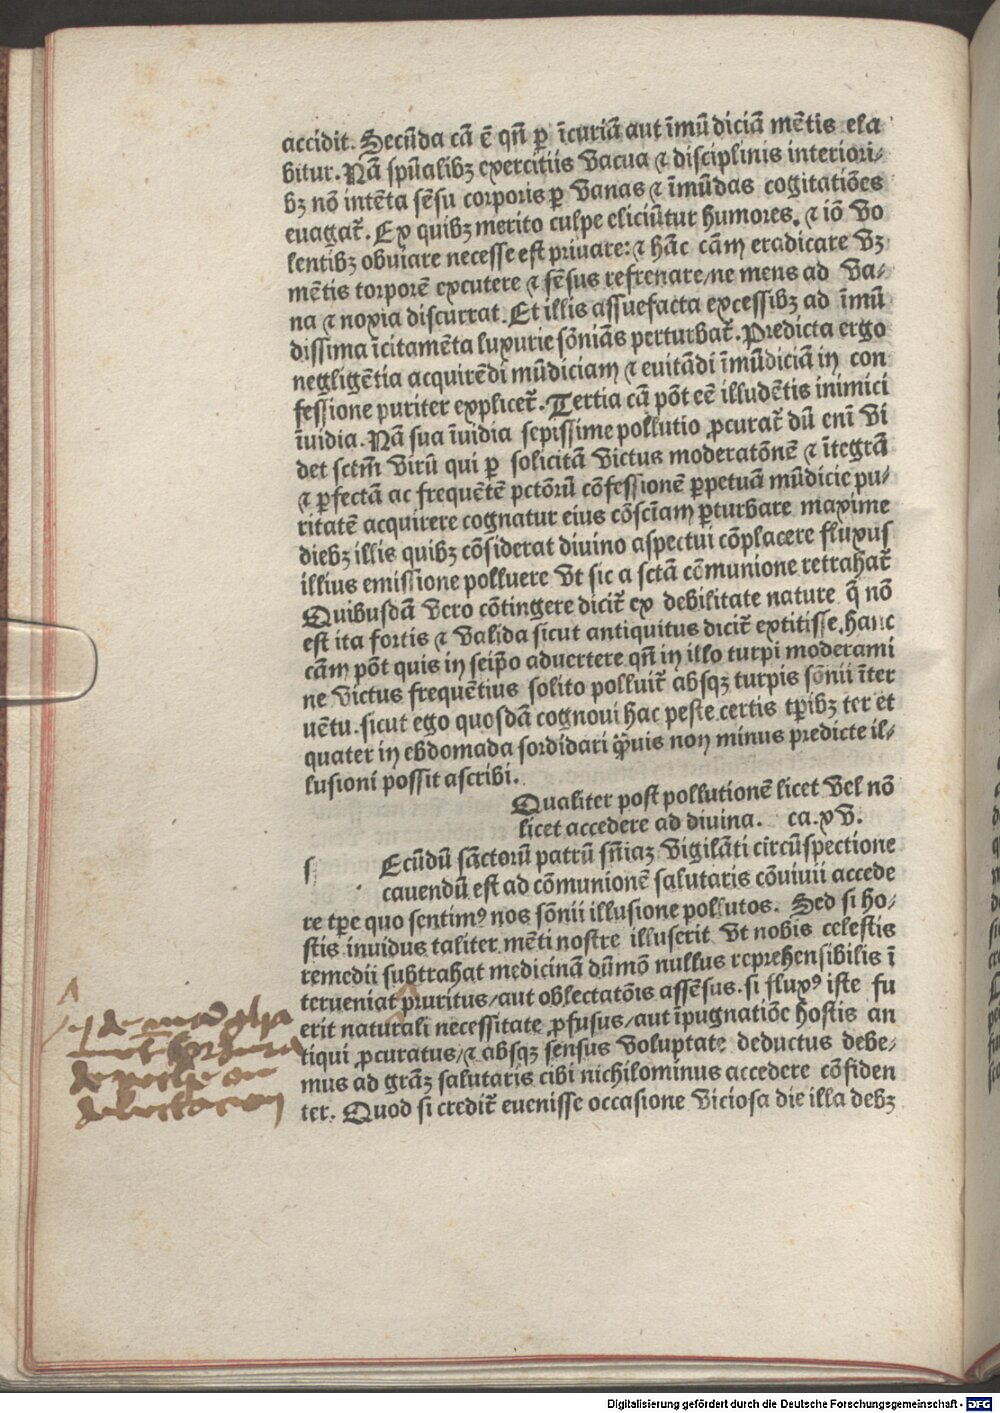 accidit. Secūda cā ē qn̄ ꝑ īcuriā aut īmūdiciā mētis ela
bitur. Nā spūalibꝫ exercitiis vacua ⁊ disciplinis interiori⸗
bꝫ nō intēta sēsu corporis ꝑ vanas ⁊ īmūdas cogitatiōes
euagat᷑. Ex quibꝫ merito culpe eliciūtur humores. ⁊ iō vo
lentibꝫ obuiare necesse est priuare: ⁊ hāc cām eradicare vꝫ
mētis torporē excutere ⁊ sēsus refrenare/ne mens ad va⸗
na ⁊ noxia discurrat. Et illis assuefacta excessibꝫ ad īmū
dissima īcitamēta luxurie sōniās perturbat᷑. Predicta ergo
negligētia acquirēdi mūdiciam ⁊ euitādi īmūdiciā in con
fessione puriter explicet᷑. Tertia cā pōt eē illudētis inimici
īuidia. Nā sua īuidia sepissime pollutio ꝓcurat᷑ dū enī vi
det sctm̄ virū qui ꝑ solicitā victus moderatōnē ⁊ ītegrā
⁊ ꝑfectā ac frequētē pctōrū cōfessionē ꝑpetuā mūdicie pu⸗
ritatē acquirere cognatur eius cōsciam ꝑturbare maxime
diebꝫ illis quibꝫ cōsiderat diuino aspectui cōplacere fluxus
illius emissione polluere vt sic a sctā cōmunione retrahat᷑
Quibusdā vero cōtingere dicit᷑ ex debilitate nature q̄ nō
est ita fortis ⁊ valida sicut antiquitus dicit᷑ extitisse. hanc
cām pōt quis in seip̄o aduertere qn̄ in illo turpi moderami
ne victus frequētius solito polluit᷑ absqꝫ turpis sōnii īter
uētu. sicut ego quosdā cognoui hac peste certis tꝑibꝫ ter et
quater in ebdomada sordidari qͣꝫuis non minus predicte il⸗
lusioni possit ascribi.
Qualiter post pollutionē licet vel nō
licet accedere ad diuina. ca. xv.
s Ecūdū sāctorū patrū sn̄iaꝫ vigilāti circūspectione
cauendū est ad cōmunionē salutaris cōuiuii accede
re tꝑe quo sentimꝰ nos sōnii illusione pollutos. Sed si ho⸗
stis inuidus taliter mēti nostre illuserit vt nobis celestis
remedii subtrahat medicinā dūmō nullus reprehensibilis ī
terueniat pruritus/aut oblectatōis assēsus. si fluxꝰ iste fu
erit naturali necessitate ꝓfusus/aut īpugnatiōe hostis an
tiqui ꝓcuratus/⁊ absqꝫ sensus voluptate deductus debe⸗
mus ad grāꝫ salutaris cibi nichilominus accedere cōfiden
ter. Quod si credit᷑ euenisse occasione viciosa die illa debꝫ
Digitalisierung gefördert durch die Deutsche Forschungsgemeinschaft - DFG